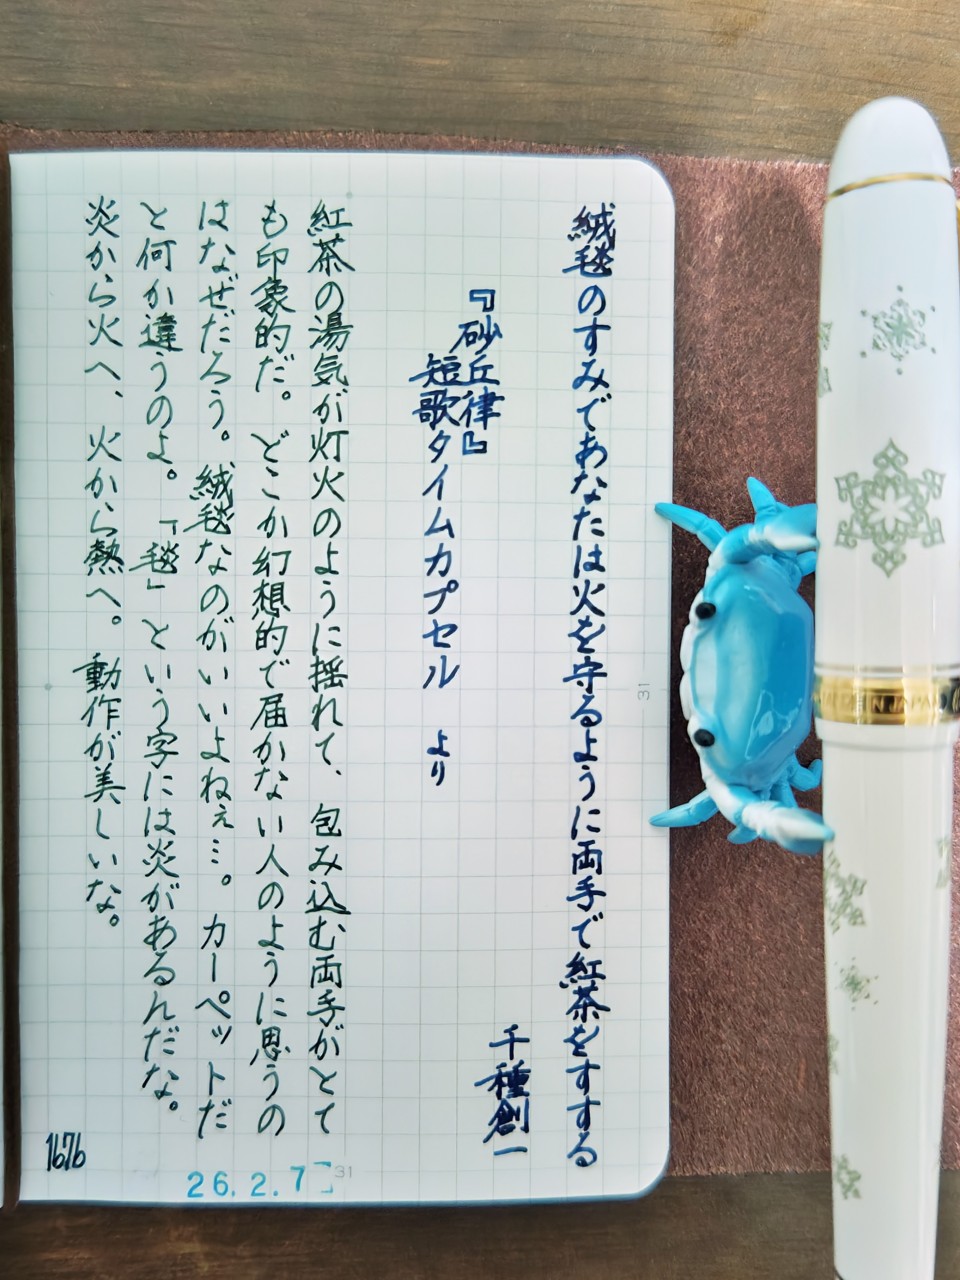 絨毯のすみであなたは火を守るように両手で紅茶をすする
千種創一
『砂丘律』
短歌タイムカプセル　より
紅茶の湯気が灯火のように揺れて、包み込む両手がとて
も印象的だ。どこか幻想的で届かない人のように思うの
はなぜだろう。絨毯なのがいいよねぇ…。カーペットだ
と何か違うのよ。「毯」という字には炎があるんだな。
炎から火へ、火から熱へ。動作が美しいな。
1676
26.2.7
31
31